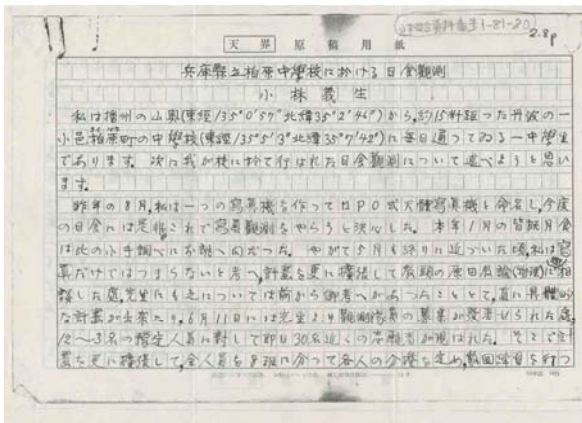 山本進資料番号1-81-80
2.8p
天界 原稿用紙
兵庫縣立柏原中學校に於ける日食観測
小林義生
私は播州の山奥(東經135°0′57″北緯35°2′46″)から,約15粁距った丹波の一
小邑柏原町の中學校(東經135°5′3″北緯35°7′42″)に毎日通ってゐる一中學生
であります。次に我が校に於て行はれた日食観測について述べようと思い
ます。
昨年の8月,私は一つの寫眞機を作ってはPO式天體寫眞機と命名し,今度
の日食には是非これで寫眞観測をやらうと決心した。本年1月の皆既月食
は此の小手調べにお誂へ向だった。やがて5月も終りに近づいた頃,私は寫
眞だけではつまらないと考へ,計畫を更に擴張して教頭の原田教諭(物理)に相
談した處,先生にも之については前から御考へがあったこととて,直に具體的
な計畫が出来たり,6月11日には先生より観測隊員の募集が發表せられた處,
12〜3名の豫定人員に對して即日30名近くの志願者が現はれた。そこで計
畫を更に擴張して,全人員を8班に分って各人の分擔を定め,數回演習を行つ